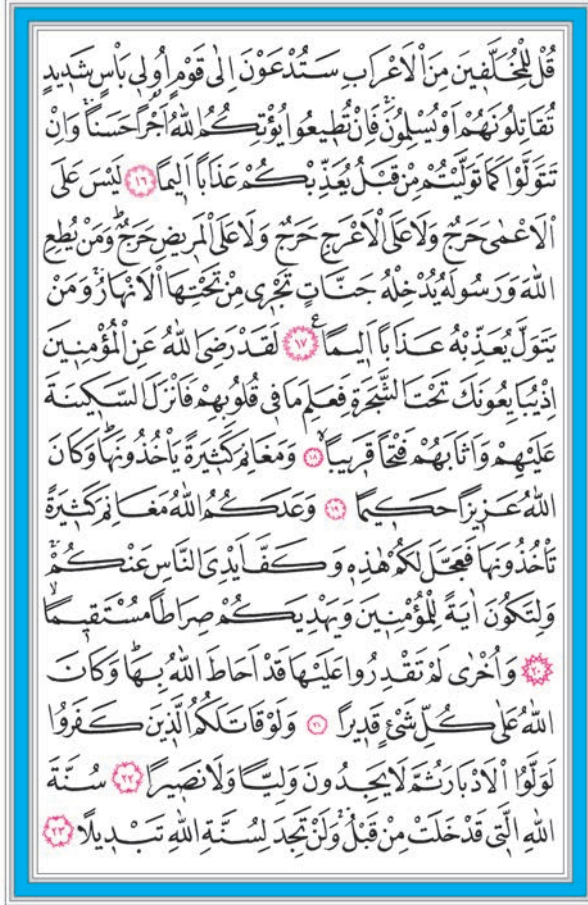 قُلْ لِلْمُخَلَّفٖينَ مِنَ الْاَعْرَابِ سَتُدْعَوْنَ اِلٰى قَوْمٍ اُولٖي بَأْسٍ شَدٖيدٍ
تُقَاتِلُونَهُمْ اَوْ يُسْلِمُونَۚ فَاِنْ تُطٖيعُوا يُؤْتِكُمُ اللّٰهُ اَجْراً حَسَناًۚ وَاِنْ
تَتَوَلَّوْا كَمَا تَوَلَّيْتُمْ مِنْ قَبْلُ يُعَذِّبْكُمْ عَذَاباً اَلٖيماً ﴿١٦﴾ لَيْسَ عَلَى
الْاَعْمٰى حَرَجٌ وَلَا عَلَى الْاَعْرَجِ حَرَجٌ وَلَا عَلَى الْمَرٖيضِ حَرَجٌؕ وَمَنْ يُطِعِ
اللّٰهَ وَرَسُولَهُ يُدْخِلْهُ جَنَّاتٍ تَجْرٖي مِنْ تَحْتِهَا الْاَنْهَارُۚ وَمَنْ
يَتَوَلَّ يُعَذِّبْهُ عَذَاباً اَلٖيماًࣖ ﴿١٧﴾ لَقَدْ رَضِيَ اللّٰهُ عَنِ الْمُؤْمِنٖينَ
اِذْ يُبَايِعُونَكَ تَحْتَ الشَّجَرَةِ فَعَلِمَ مَا فٖي قُلُوبِهِمْ فَاَنْزَلَ السَّكٖينَةَ
عَلَيْهِمْ وَاَثَابَهُمْ فَتْحاً قَرٖيباًۙ ﴿١٨﴾ وَمَغَانِمَ كَثٖيرَةً يَأْخُذُونَهَاؕ وَكَانَ
اللّٰهُ عَزٖيزاً حَكٖيماً ﴿١٩﴾ وَعَدَكُمُ اللّٰهُ مَغَانِمَ كَثٖيرَةً
تَأْخُذُونَهَا فَعَجَّلَ لَكُمْ هٰذِهٖ وَكَفَّ اَيْدِيَ النَّاسِ عَنْكُمْۚ
وَلِتَكُونَ اٰيَةً لِلْمُؤْمِنٖينَ وَيَهْدِيَكُمْ صِرَاطاً مُسْتَقٖيماًۙ
﴿٢٠﴾ وَاُخْرٰى لَمْ تَقْدِرُوا عَلَيْهَا قَدْ اَحَاطَ اللّٰهُ بِهَاؕ وَكَانَ
اللّٰهُ عَلٰى كُلِّ شَيْءٍ قَدٖيراً ﴿٢١﴾ وَلَوْ قَاتَلَكُمُ الَّذٖينَ كَفَرُوا
لَوَلَّوُا الْاَدْبَارَ ثُمَّ لَا يَجِدُونَ وَلِياًّ وَلَا نَصٖيراً ﴿٢٢﴾ سُنَّةَ
اللّٰهِ الَّتٖي قَدْ خَلَتْ مِنْ قَبْلُۚ وَلَنْ تَجِدَ لِسُنَّةِ اللّٰهِ تَبْدٖيلاً ﴿٢٣﴾